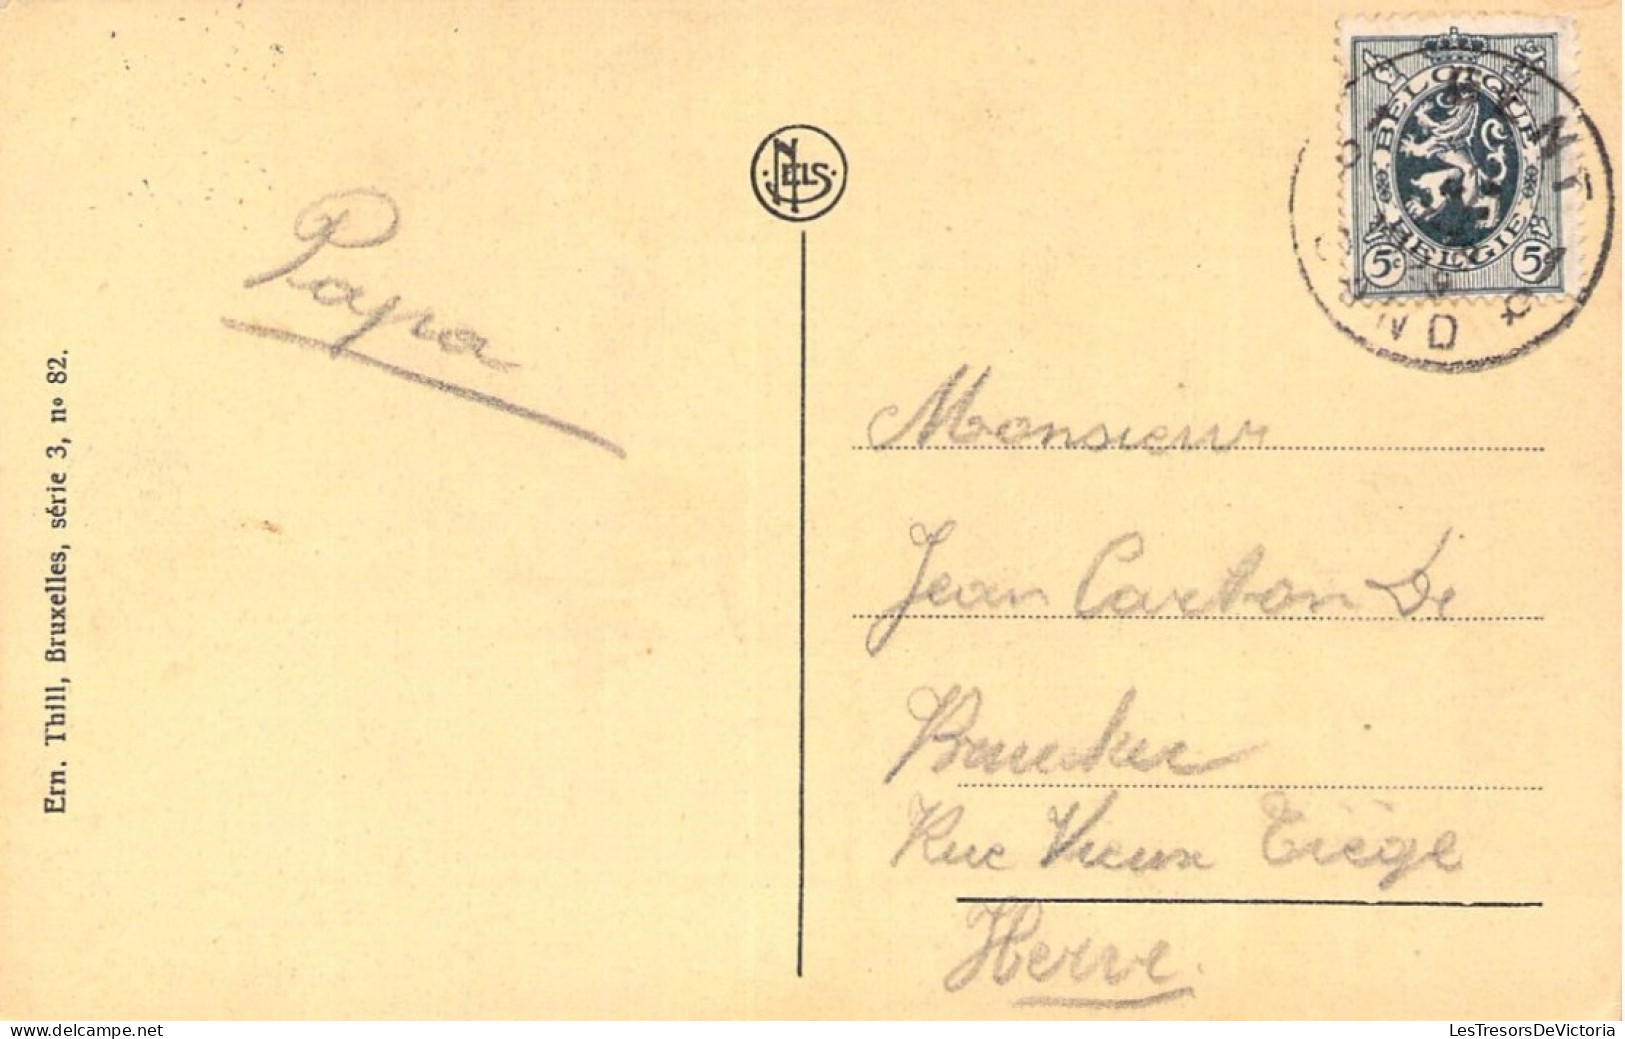 Ern. Thill, Bruxelles, série 3, nº 82.
NELS
Papa
BELGIQUE
BELGIË
5c 5c
GENT
GAND
Monsieur
Jean Carton De
Rue Vieux Tiège
Herve
delcampe.net
LesTresorsDeVictoria